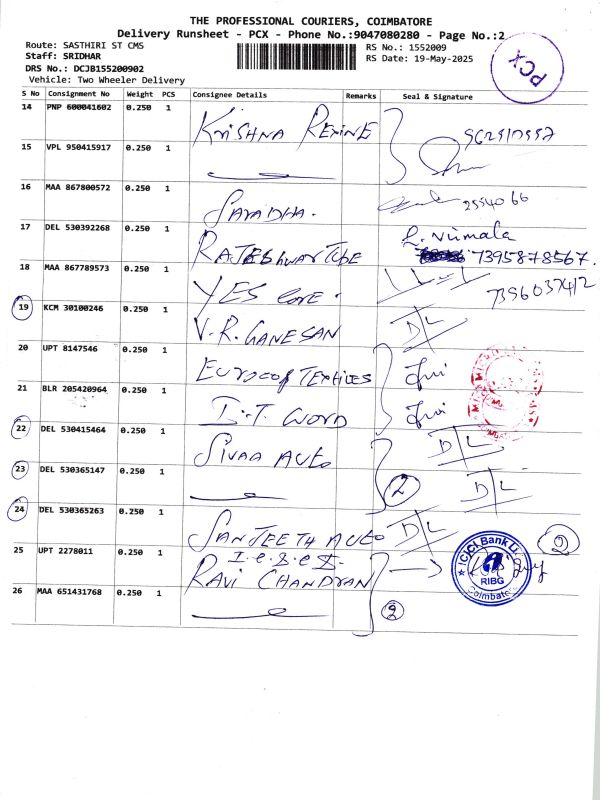 THE PROFESSIONAL COURIERS, COIMBATORE
Delivery Runsheet - PCX - Phone No.:9047080280 - Page No.:2
Route: SASTHIRI ST CMS
RS No.: 1552009
Staff: SRIDHAR
RS Date: 19-May-2025
DRS No.: DCJB155200902
Vehicle: Two Wheeler Delivery
PCX
S No Consignment No Weight PCS Consignee Details Remarks Seal & Signature
14 PNP 600041602 0.250 1 Krishna Rexine
15 VPL 950415917 0.250 1
16 MAA 867800572 0.250 1 Saradha. 2554066
17 DEL 530392268 0.250 1 Rajeshwari Tube L. Nirmala
7395878567.
18 MAA 867789573 0.250 1 YES love. 7396037412
19 KCM 30100246 0.250 1 V.R. GANESAN D/L
20 UPT 8147546 0.250 1
21 BLR 205420964 0.250 1 D/L
22 DEL 530415464 0.250 1 Sivaa Auto
23 DEL 530365147 0.250 1 2 D/L
24 DEL 530365263 0.250 1 Sanjeeth Auto D/L
2
25 UPT 2278011 0.250 1 Ravi Chandran
ICICI Bank Ltd
RIBG
Coimbatore
26 MAA 651431768 0.250 1 2